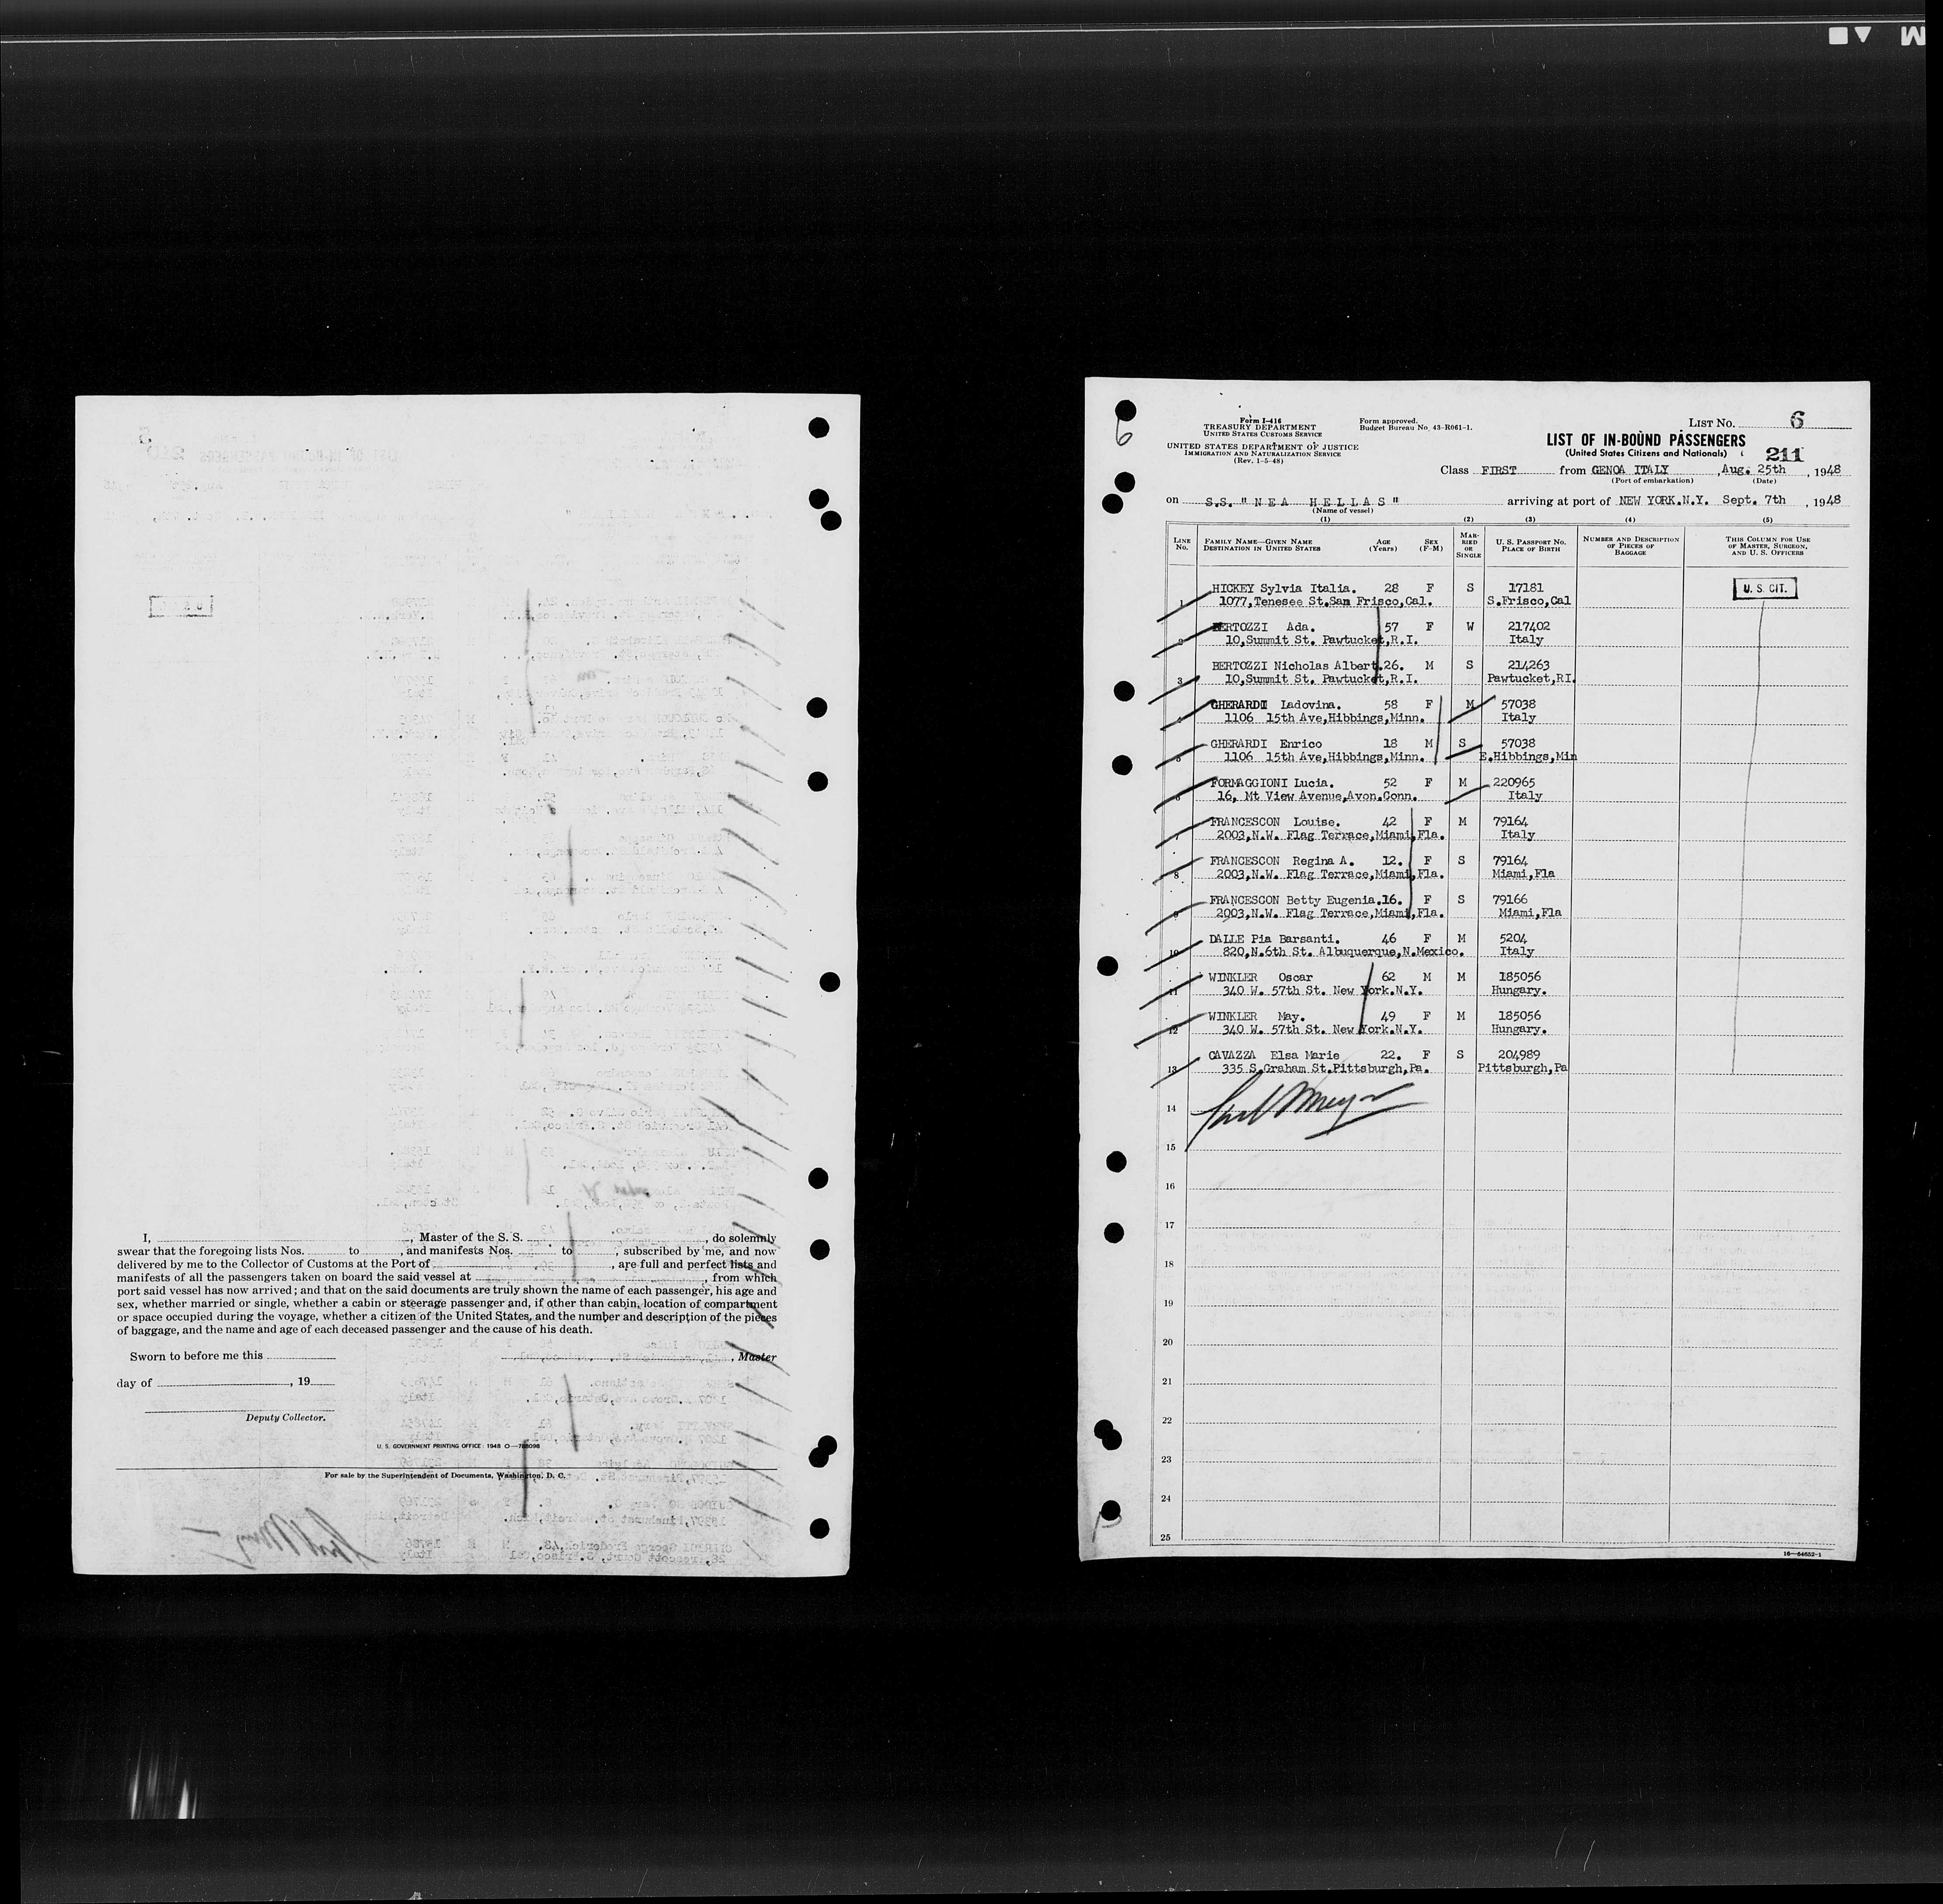 I, , Master of the S. S. , do solemnly
swear that the foregoing lists Nos. to , and manifests Nos. to , subscribed by me, and now
delivered by me to the Collector of Customs at the Port of , are full and perfect lists and
manifests of all the passengers taken on board the said vessel at , from which
port said vessel has now arrived; and that on the said documents are truly shown the name of each passenger, his age and
sex, whether married or single, whether a cabin or steerage passenger and, if other than cabin, location of compartment
or space occupied during the voyage, whether a citizen of the United States, and the number and description of the pieces
of baggage, and the name and age of each deceased passenger and the cause of his death.
Sworn to before me this , Master
day of , 19
Deputy Collector.
U. S. GOVERNMENT PRINTING OFFICE: 1948 O—788098
For sale by the Superintendent of Documents, Washington, D. C.
6
Form I-416
TREASURY DEPARTMENT
UNITED STATES CUSTOMS SERVICE
UNITED STATES DEPARTMENT OF JUSTICE
IMMIGRATION AND NATURALIZATION SERVICE
(Rev. 1-5-48)
Form approved.
Budget Bureau No. 43-R061-1.
LIST No. 6
LIST OF IN-BOUND PASSENGERS
(United States Citizens and Nationals)
211
Class FIRST from GENOA ITALY , Aug. 25th , 1948
(Port of embarkation) (Date)
on S.S. "NEA HELLAS" arriving at port of NEW YORK.N.Y. Sept. 7th , 1948
(Name of vessel)
(1) (2) (3) (4) (5)
LINE No. FAMILY NAME—GIVEN NAME DESTINATION IN UNITED STATES AGE (Years) SEX (F-M) MARRIED OR SINGLE U. S. PASSPORT NO. PLACE OF BIRTH NUMBER AND DESCRIPTION OF PIECES OF BAGGAGE THIS COLUMN FOR USE OF MASTER, SURGEON, AND U. S. OFFICERS
HICKEY Sylvia Italia. 28 F S 17181 U. S. CIT.
1 1077,Tenesee St.San Frisco,Cal. S.Frisco,Cal
BERTOZZI Ada. 57 F W 217402
2 10,Summit St. Pawtucket,R.I. Italy
BERTOZZI Nicholas Albert.26. M S 214263
3 10,Summit St. Pawtucket,R.I. Pawtucket,RI.
GHERARDI Ladovina. 58 F M 57038
4 1106 15th Ave,Hibbings,Minn. Italy
GHERARDI Enrico 18 M S 57038
5 1106 15th Ave,Hibbings,Minn. E.Hibbings,Min
FORMAGGIONI Lucia. 52 F M 220965
6 16, Mt View Avenue,Avon.Conn. Italy
FRANCESCON Louise. 42 F M 79164
7 2003,N.W. Flag Terrace,Miami,Fla. Italy
FRANCESCON Regina A. 12. F S 79164
8 2003,N.W. Flag Terrace,Miami,Fla. Miami,Fla
FRANCESCON Betty Eugenia.16. F S 79166
9 2003,N.W. Flag Terrace,Miami,Fla. Miami,Fla
DALLE Pia Barsanti. 46 F M 5204
10 820,N.6th St. Albuquerque,N.Mexico. Italy
WINKLER Oscar 62 M M 185056
11 340 W. 57th St. New York.N.Y. Hungary.
WINKLER May. 49 F M 185056
12 340 W. 57th St. New York.N.Y. Hungary.
CAVAZZA Elsa Marie 22. F S 204989
13 335 S.Graham St.Pittsburgh,Pa. Pittsburgh,Pa
14
15
16
17
18
19
20
21
22
23
24
25
16—54652-1